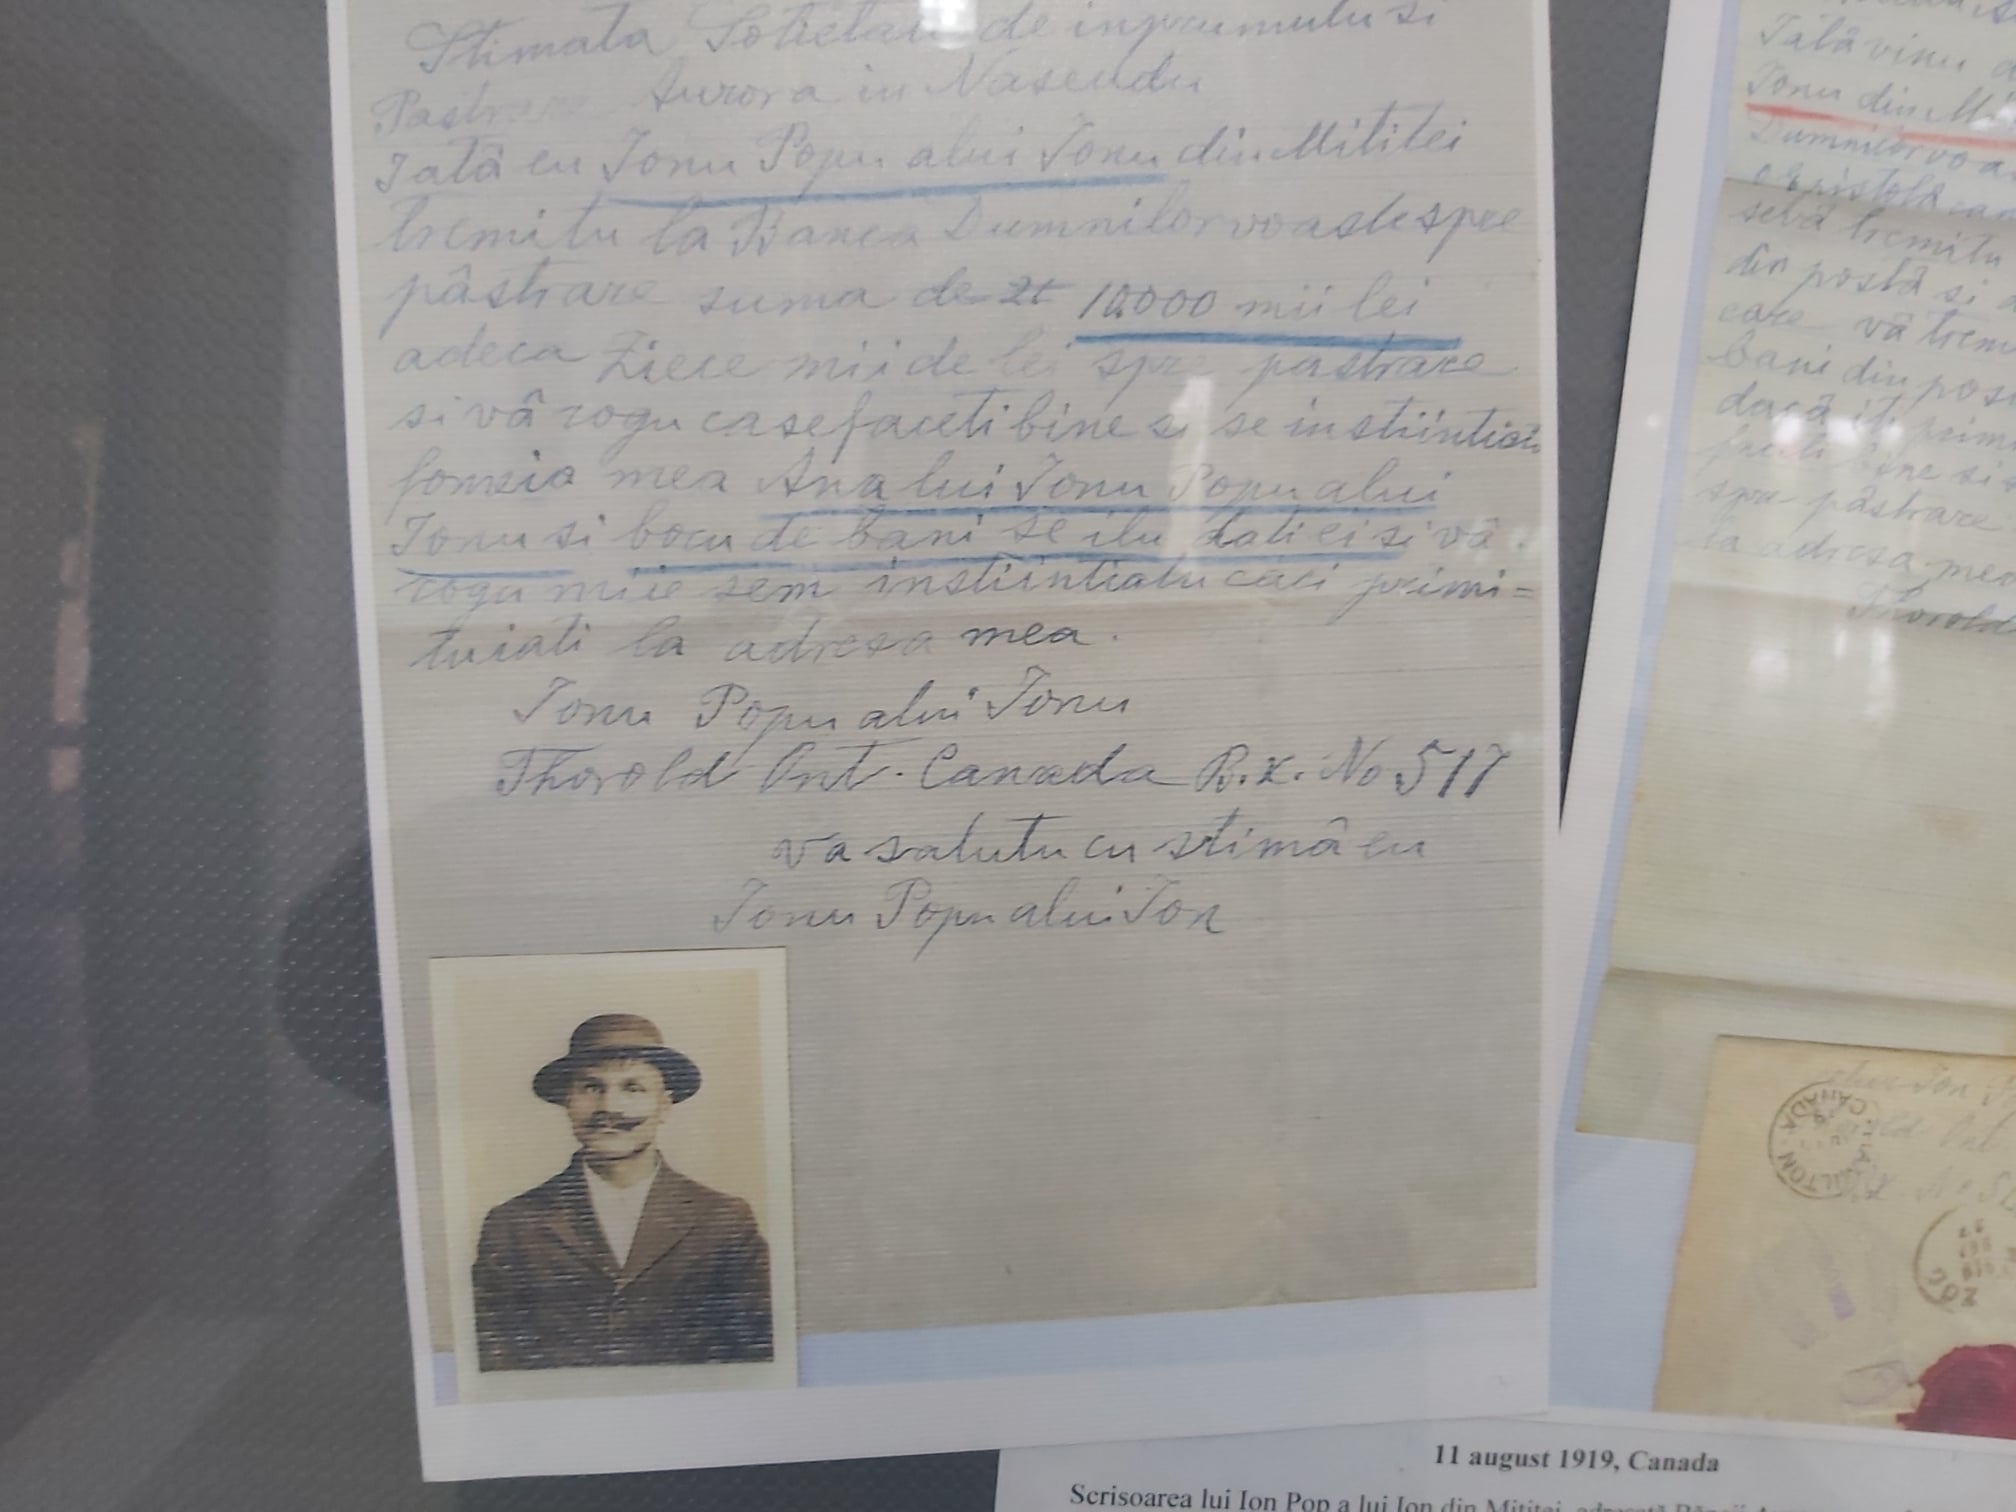 Stimata Sotietati de inprumutu si
Pastrare Aurora in Naseudu
Iatâ eu Ionu Popu alui Ionu din Mititei
tremitu la Banca Dumnilorvoaste spre
pâstrare suma de 10.000 mii lei
adeca Ziece mii de lei spre pastrare
si vâ rogu ca se faceti bine si se instiintiati
fomeia mea Ana lui Ionu Popu alui
Ionu si bocu de bani se ilu dati ei si vâ
rogu mie sem instiintiatu caci primi=
tuiati la adresa mea.
Ionu Popu alui Ionu
Thorold Ont. Canada B.x. No 517
va salutu cu stimâ eu
Ionu Popu alui Ion
Iatâ vinu
Ionu din
Dumnilorvoa
epistola
sevâ tremitu
din postâ si
care vâ trem
bani din pos
dacâ iti prim
faceti bine si s
spre pâstrare
la adresa mea
Thorold
HAMILTON CANADA
11 august 1919, Canada
Scrisoarea lui Ion Pop a lui Ion din Mititei, adresată Băncii